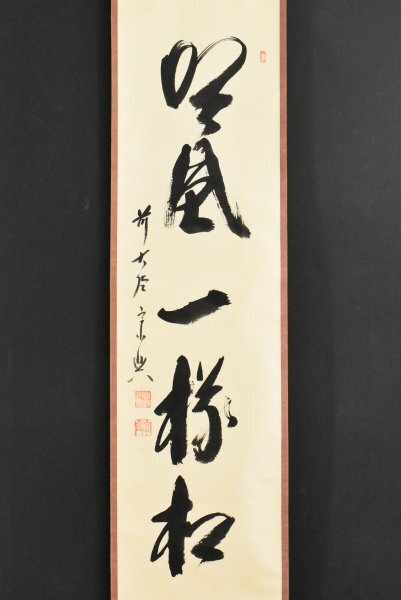 吟風一様松
前大徳宗典